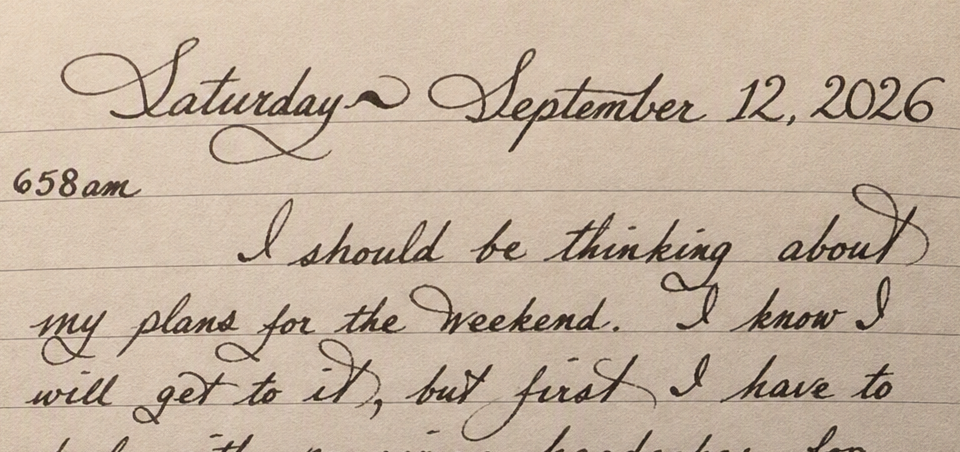 Saturday ~ September 12, 2026
658am
I should be thinking about
my plans for the weekend. I know I
will get to it, but first I have to